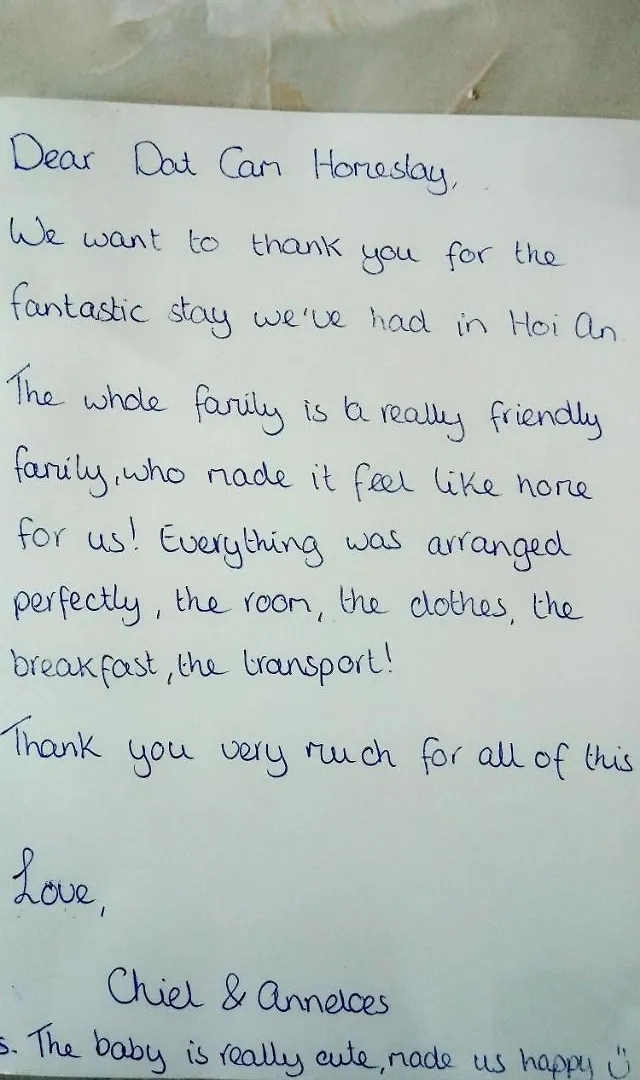 Dear Dat Cam Homestay,
We want to thank you for the
fantastic stay we've had in Hoi An
The whole family is a really friendly
family, who made it feel like home
for us! Everything was arranged
perfectly, the room, the clothes, the
breakfast, the transport!
Thank you very much for all of this
Love,
Chiel & Anneloes
s. The baby is really cute, made us happy ü